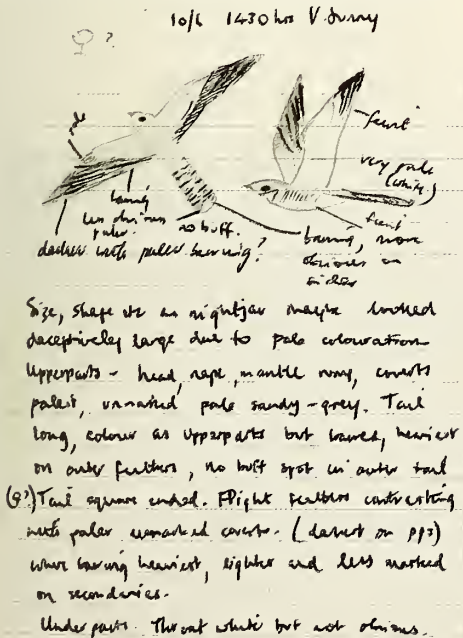 10/6 1430 hrs V. Sunny
♀ ?
pale
faint
very pale
(white)
barring
less obvious
paler
no buff.
faint
barring, more
obvious on
darker with paler barring?
Size, shape as a nightjar maybe looked
deceptively large due to pale colouration
Upperparts - head, nape, mantle rump, coverts
palest, unmarked pale sandy-grey. Tail
long, colour as upperparts but barred, heaviest
on outer feathers, no buff spot in outer tail
(♀?) Tail square ended. Flight feathers contrasting
with paler unmarked coverts. (darkest on pps)
where barring heaviest, lighter and less marked
on secondaries.
Underparts. Throat white but not obvious.